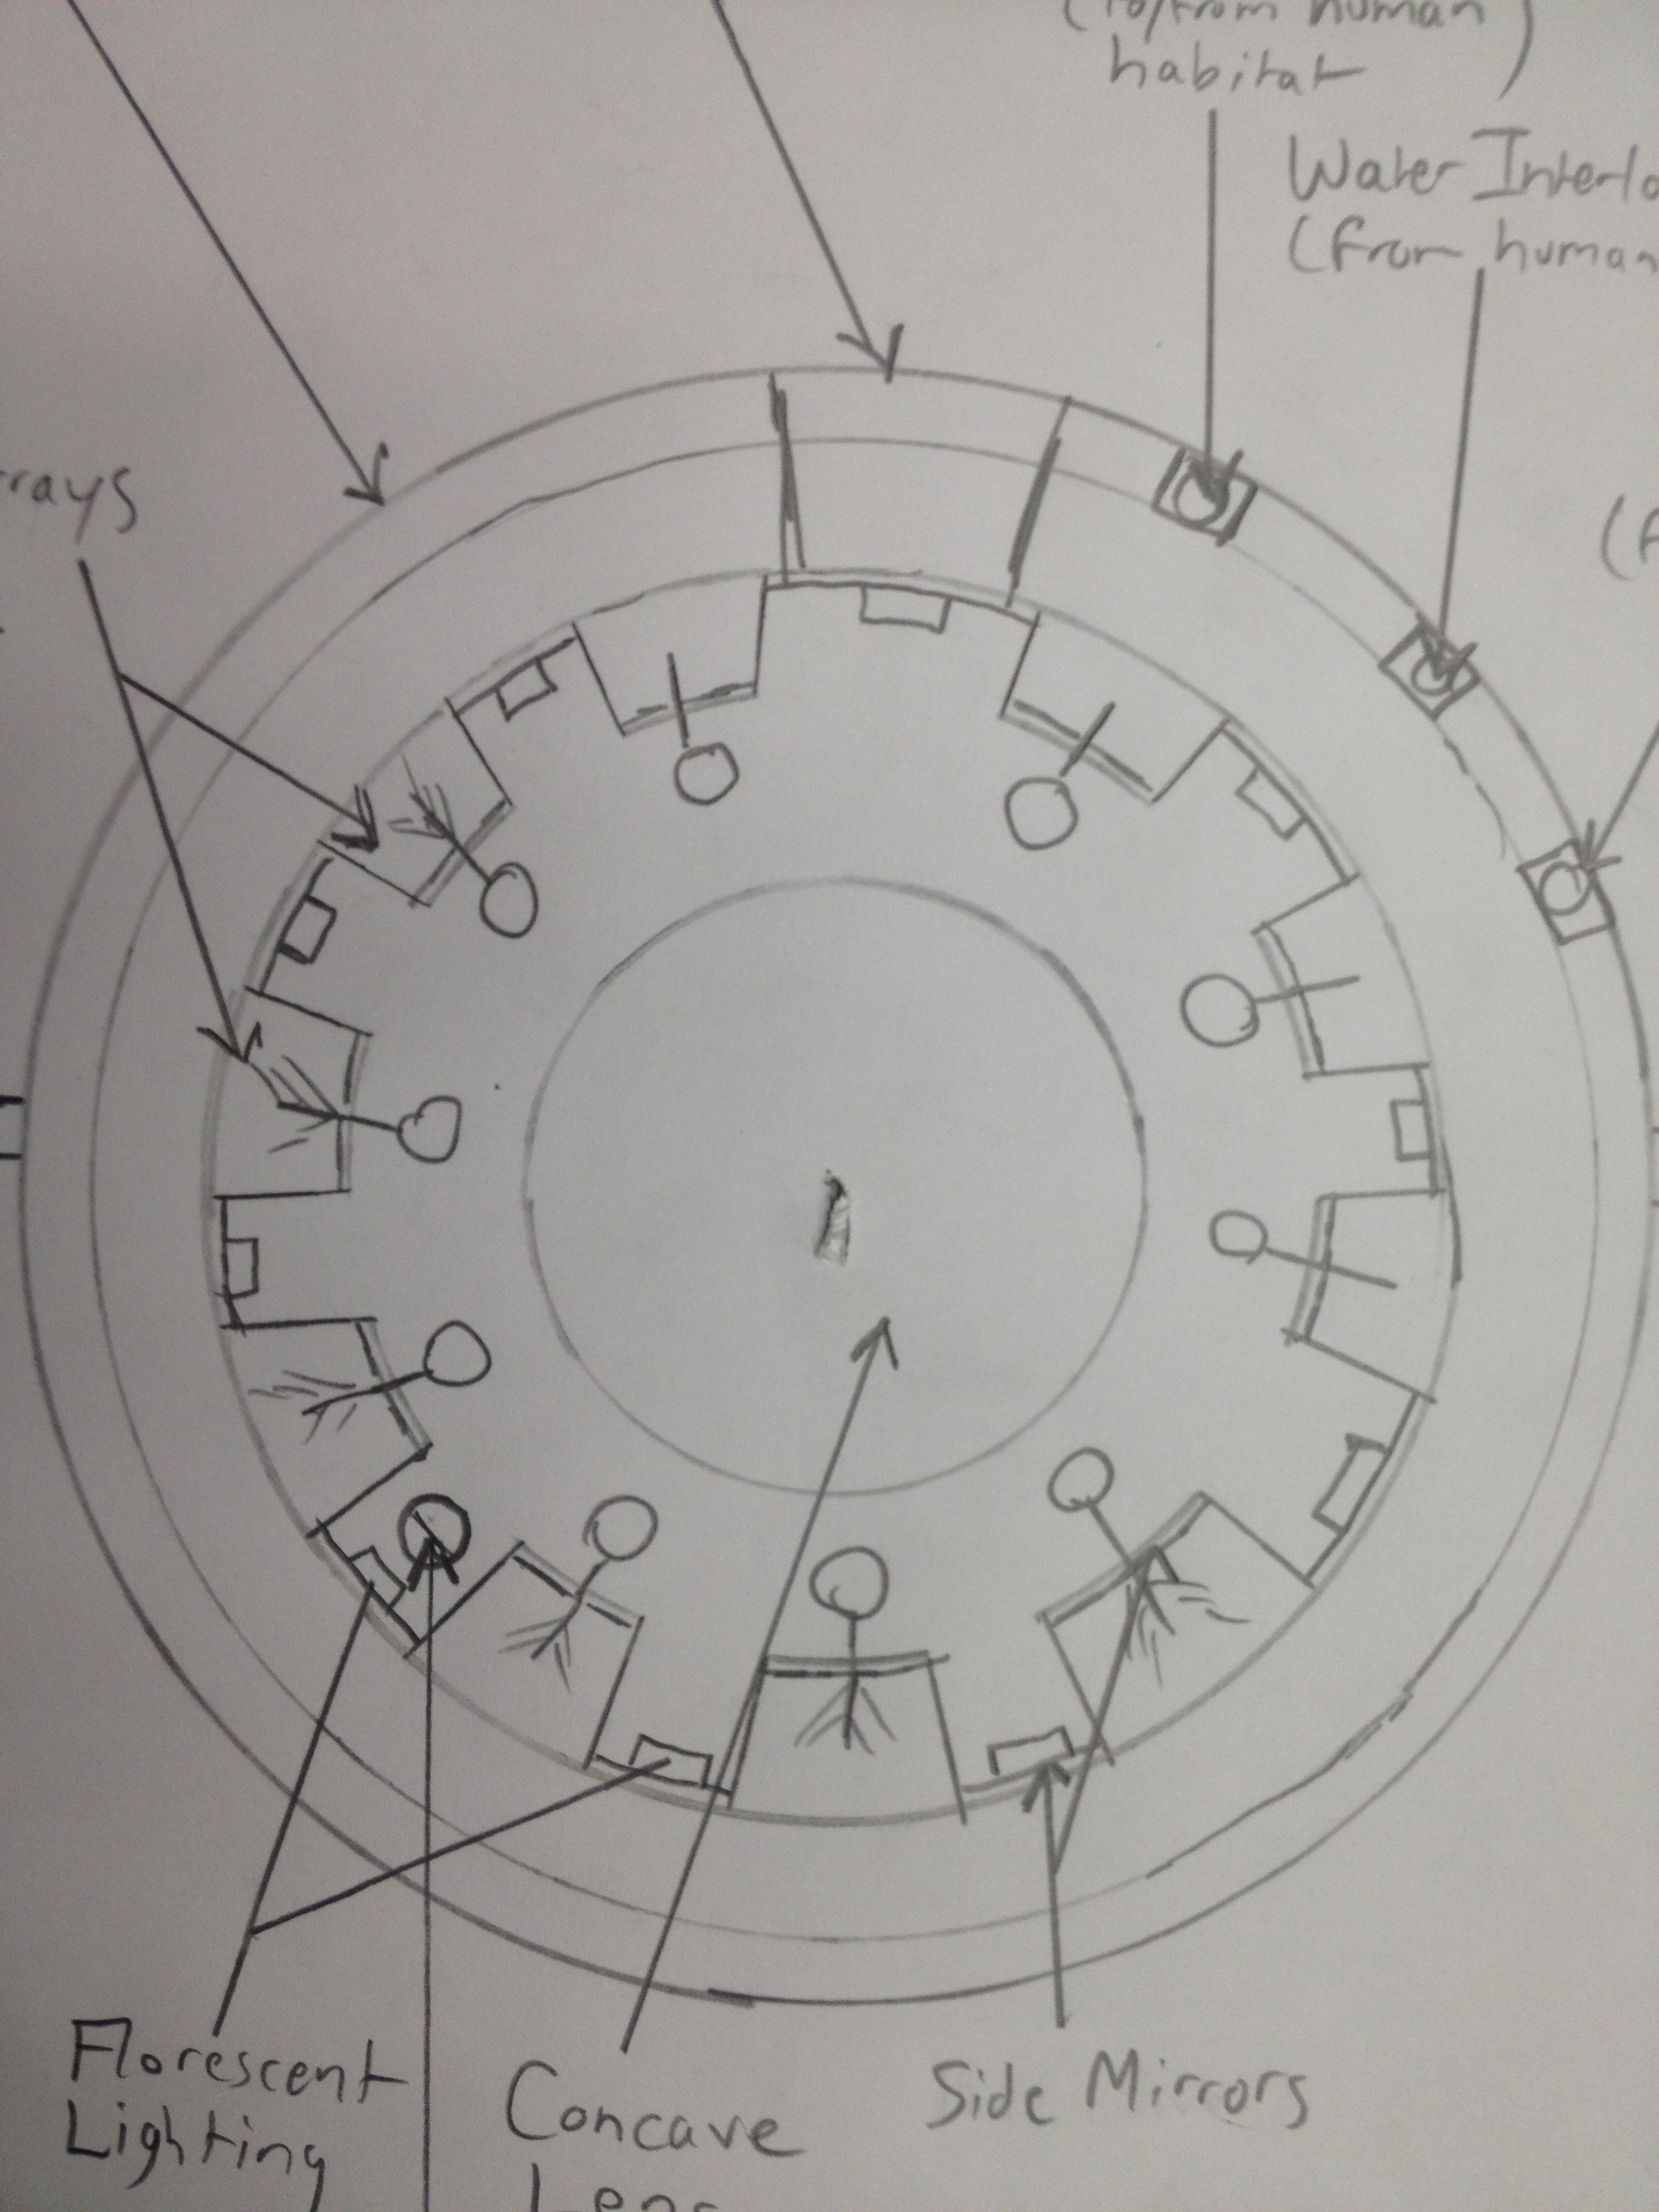 (to/from human)
habitat
Water
(from human
Florescent
Lighting
Concave
Lens
Side Mirrors